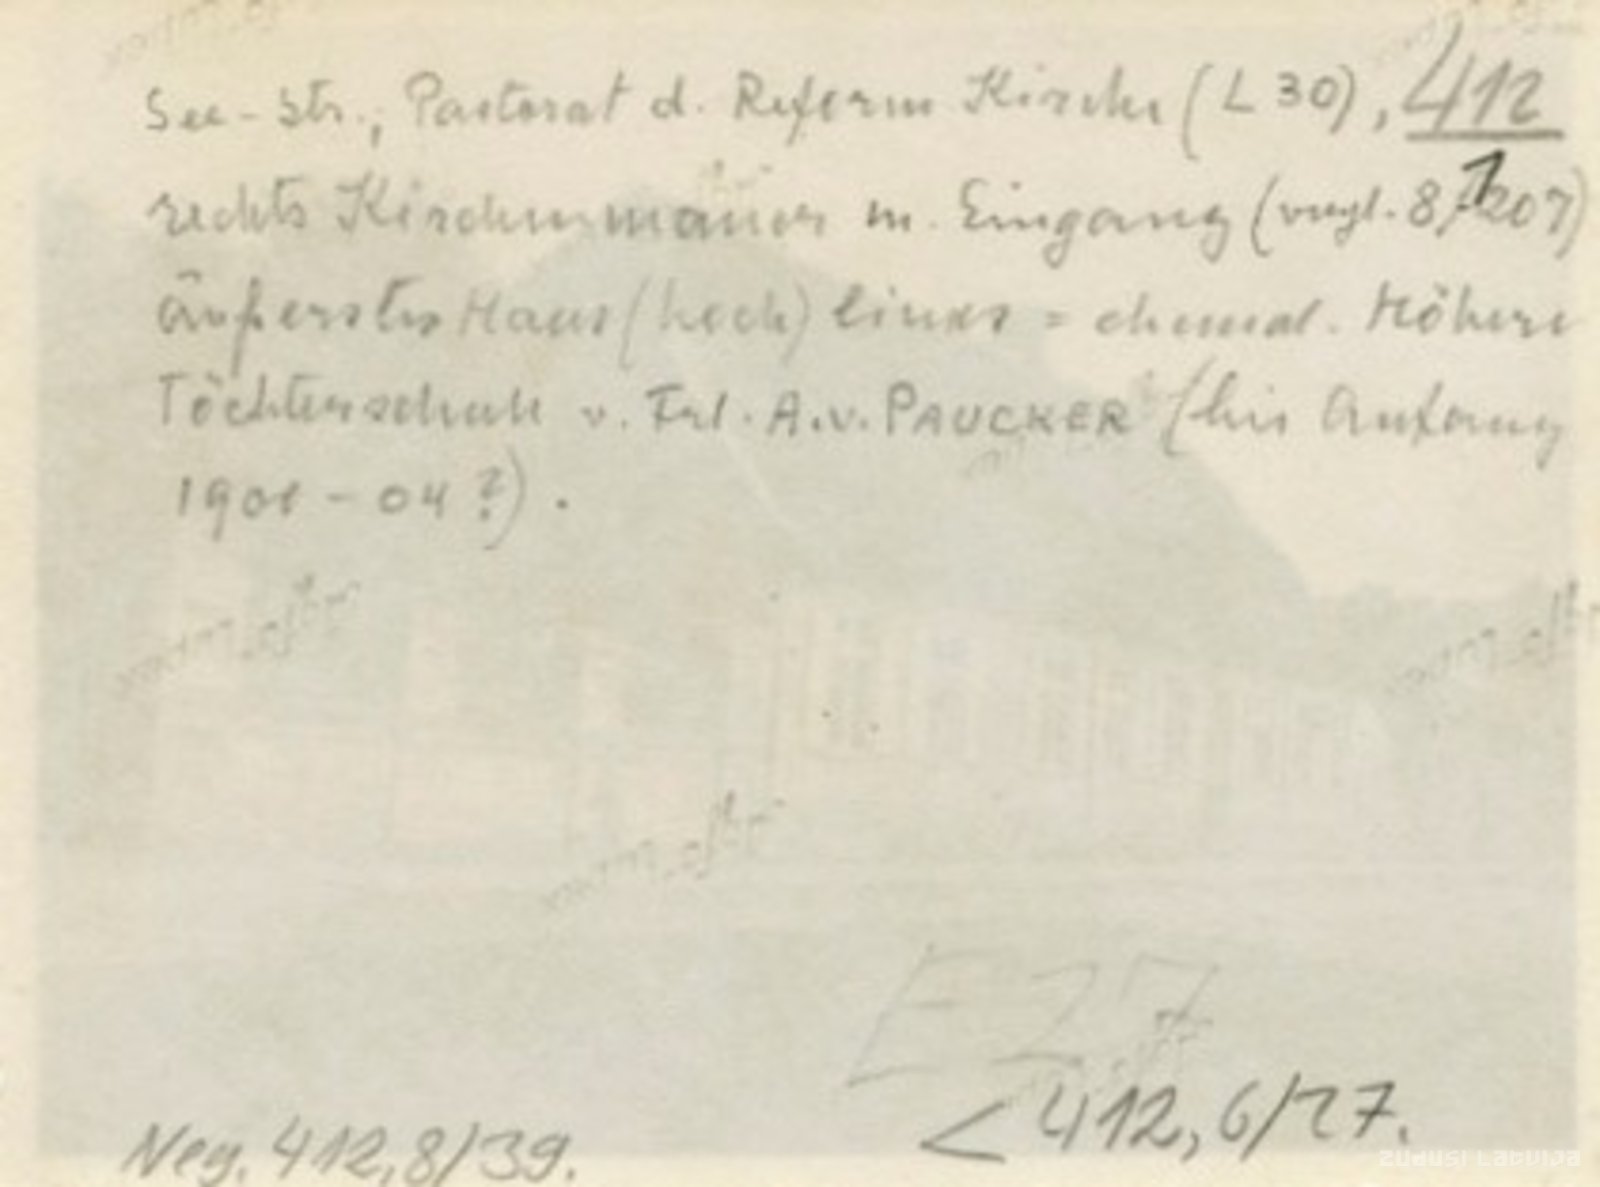 See-Str., Pastorat d. Reform Kirche (L 30), 412
rechts Kirchenmauer m. Eingang (vergl. 8/1207)
äußerstes Haus (hoch) links = ehemal. Höhere
Töchterschule v. Frl. A.v. PAUCKER (bis Anfang
1901 - 04 ?).
E 27
< 412, 6/27.
Neg. 412, 8/39.
ZUDUSI LATVIJA